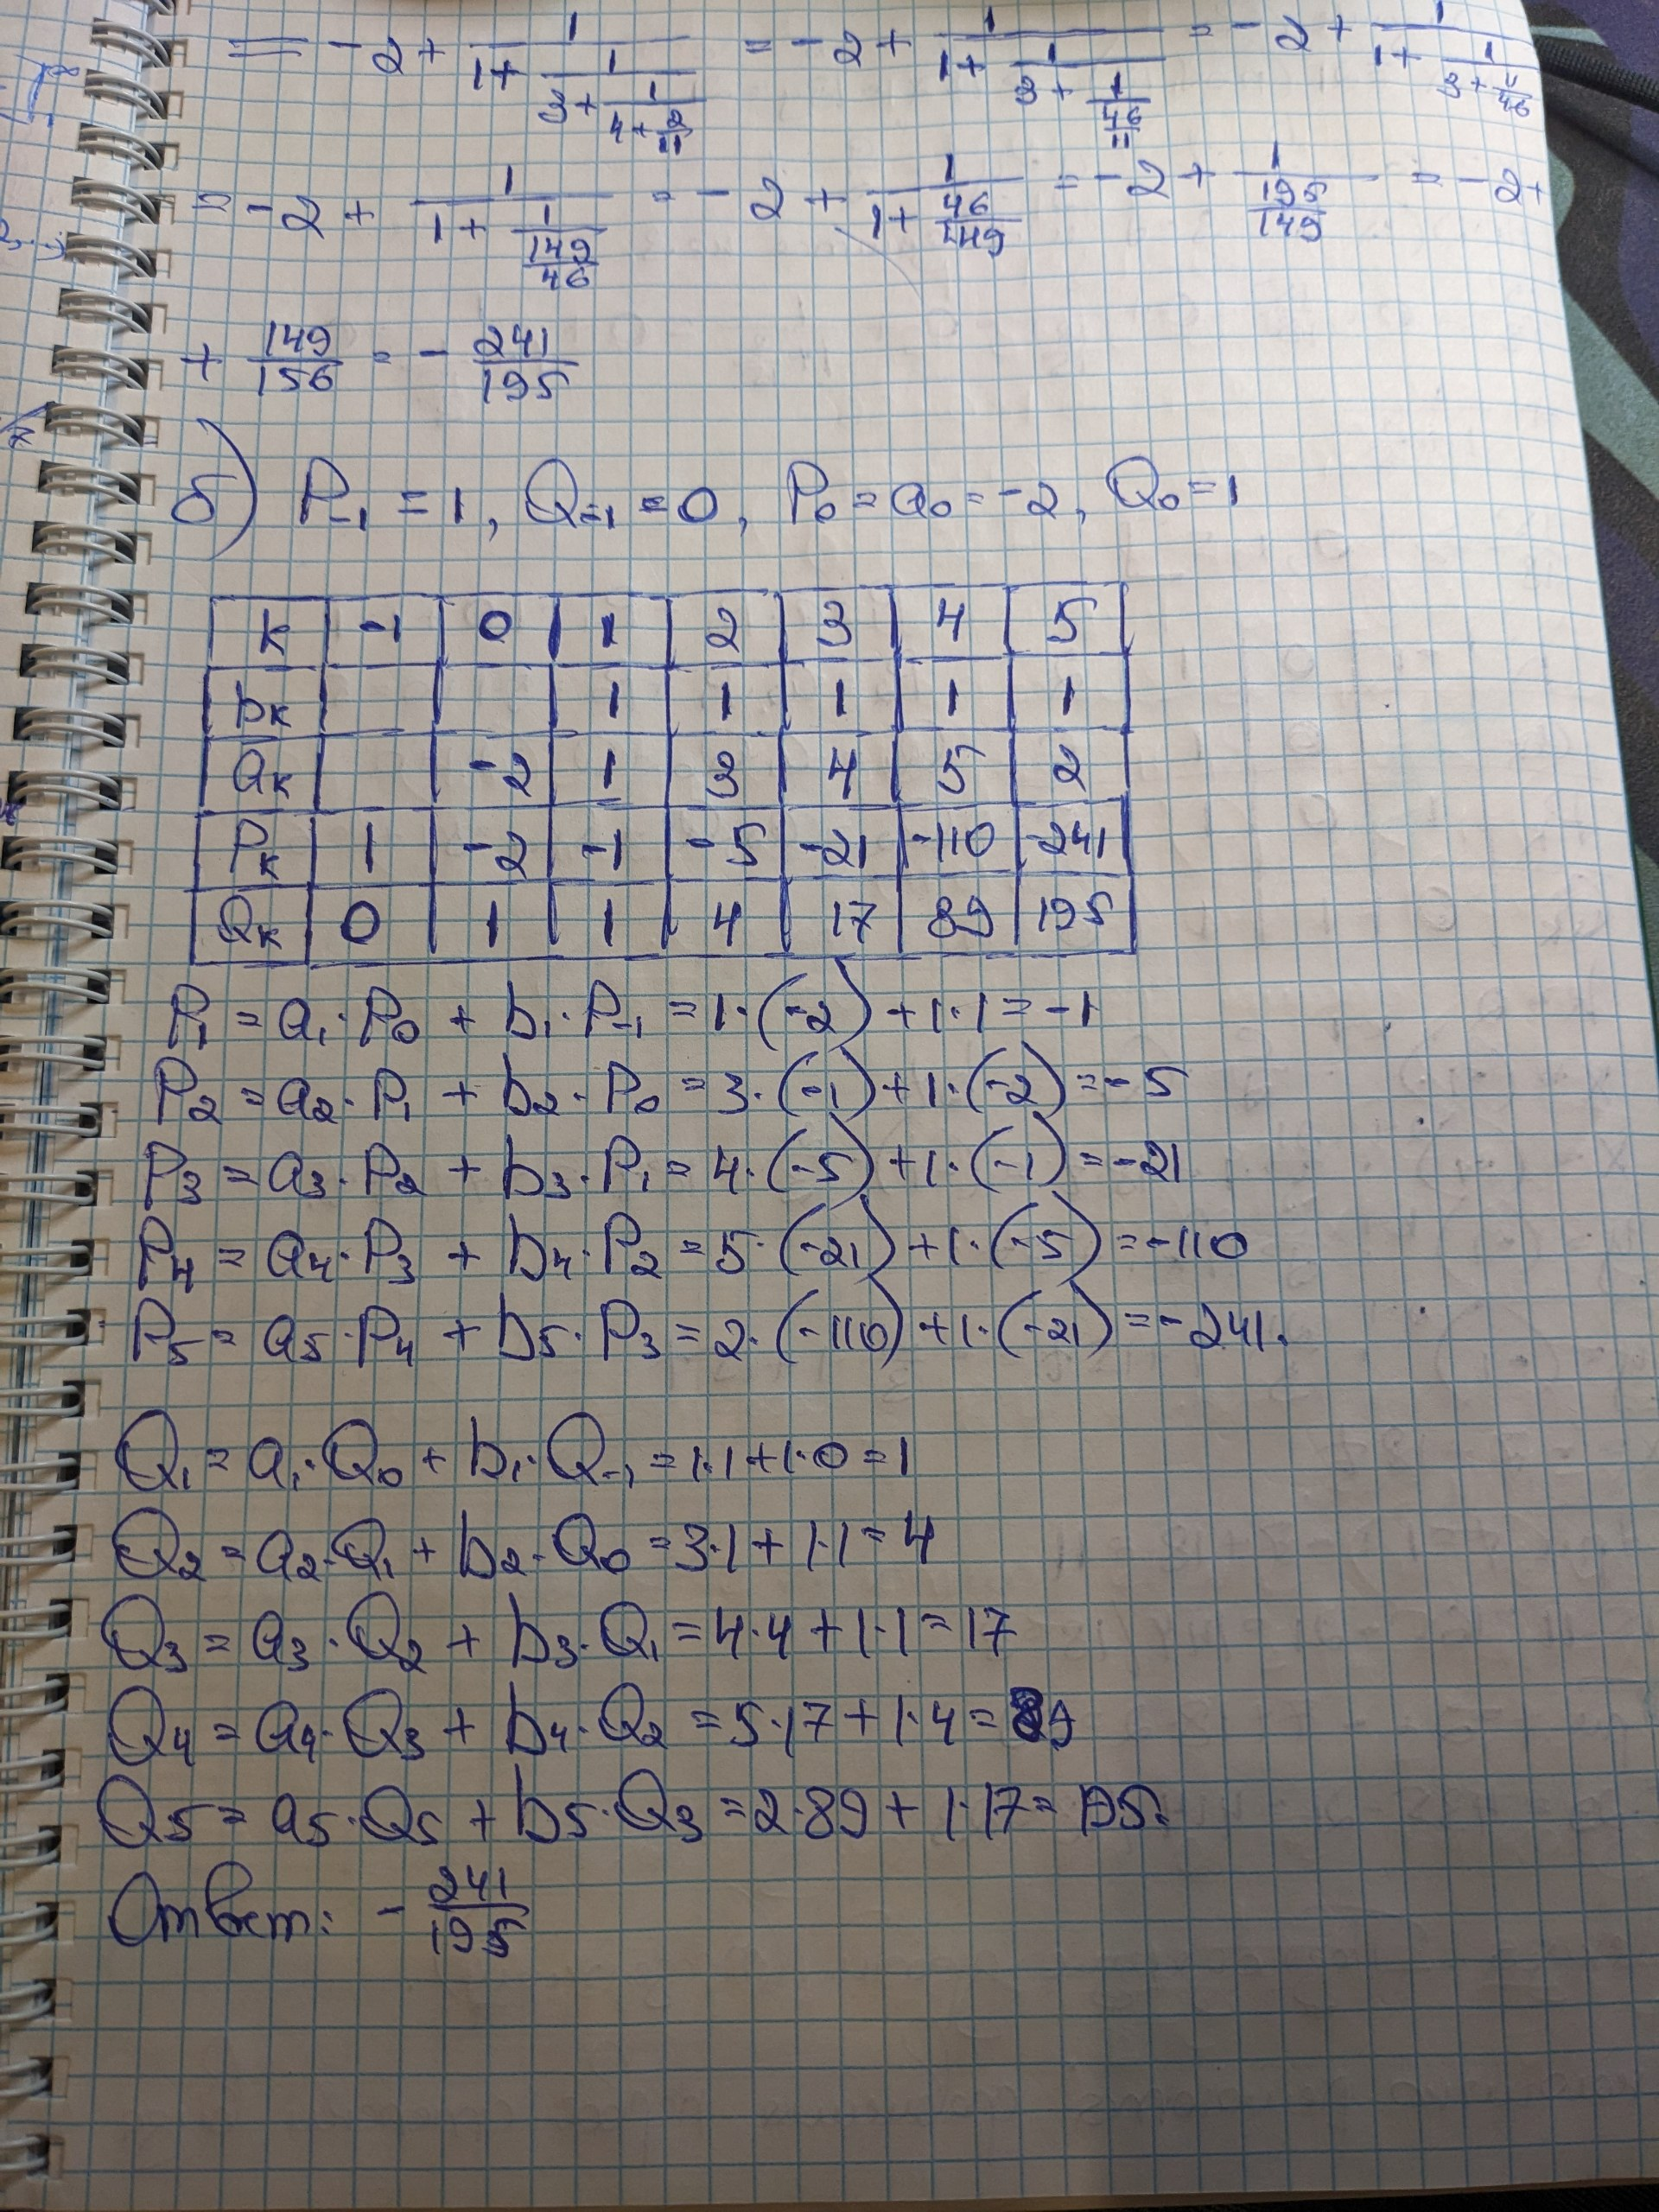 = -2 + 1/(1 + 1/(3 + 1/(4 + 2/11))) = -2 + 1/(1 + 1/(3 + 1/(46/11))) = -2 + 1/(1 + 1/(3 + 11/46))
= -2 + 1/(1 + 1/(149/46)) = -2 + 1/(1 + 46/149) = -2 + 1/(195/149) = -2 +
+ 149/156 = - 241/195
б) P₋₁ = 1, Q₋₁ = 0, P₀ = a₀ = -2, Q₀ = 1
k -1 0 1 2 3 4 5
bₖ 1 1 1 1 1
aₖ -2 1 3 4 5 2
Pₖ 1 -2 -1 -5 -21 -110 -241
Qₖ 0 1 1 4 17 89 195
P₁ = a₁·P₀ + b₁·P₋₁ = 1·(-2) + 1·1 = -1
P₂ = a₂·P₁ + b₂·P₀ = 3·(-1) + 1·(-2) = -5
P₃ = a₃·P₂ + b₃·P₁ = 4·(-5) + 1·(-1) = -21
P₄ = a₄·P₃ + b₄·P₂ = 5·(-21) + 1·(-5) = -110
P₅ = a₅·P₄ + b₅·P₃ = 2·(-110) + 1·(-21) = -241.
Q₁ = a₁·Q₀ + b₁·Q₋₁ = 1·1 + 1·0 = 1
Q₂ = a₂·Q₁ + b₂·Q₀ = 3·1 + 1·1 = 4
Q₃ = a₃·Q₂ + b₃·Q₁ = 4·4 + 1·1 = 17
Q₄ = a₄·Q₃ + b₄·Q₂ = 5·17 + 1·4 = 89
Q₅ = a₅·Q₅ + b₅·Q₃ = 2·89 + 1·17 = 195.
Ответ: - 241/195